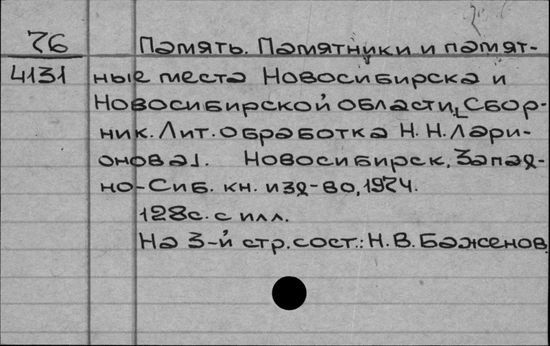 76 Память. Памятники и памят-
4131 ные места Новосибирска и
Новосибирской области, [Сбор-
ник. Лит. обработка Н.Н. Лари-
онова]. Новосибирск, Запад-
но-Сиб. кн. изд-во, 1974.
128с. с илл.
На 3-й стр. сост.: Н.В. Баженов.